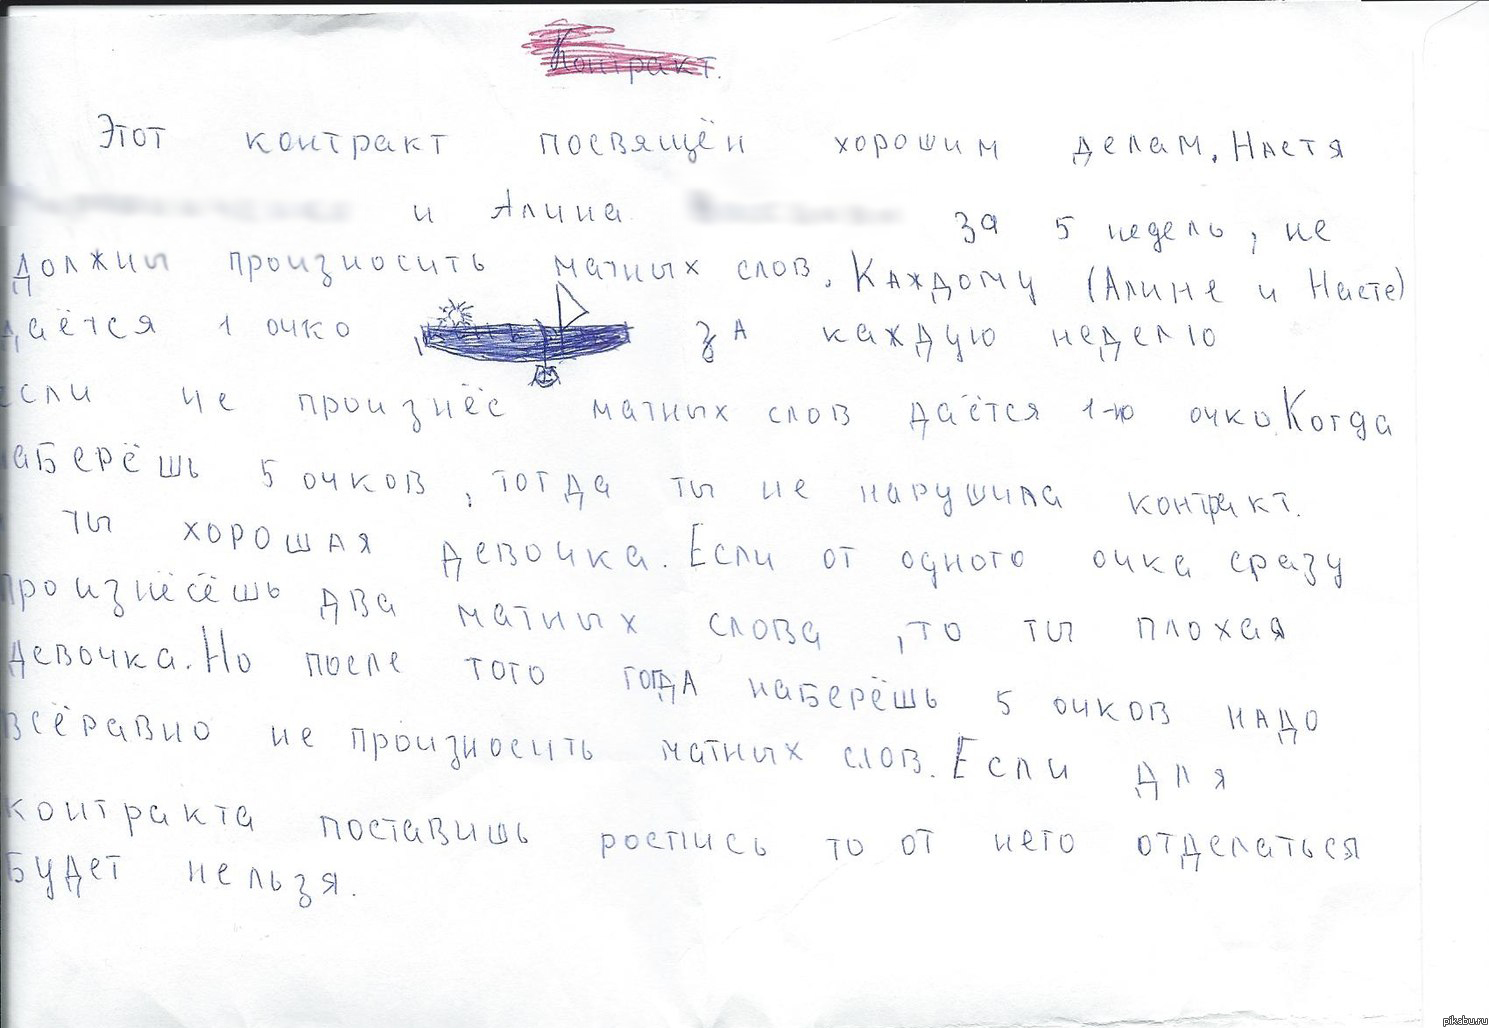 Контракт.
Этот контракт посвящён хорошим делам. Настя
и Алина за 5 недель, не
должны произносить матных слов. Каждому (Алине и Насте)
даётся 1 очко за каждую неделю
если не произнёс матных слов даётся 1-ю очко. Когда
наберёшь 5 очков, тогда ты не нарушила контракт.
ты хорошая девочка. Если от одного очка сразу
произнёсёшь два матных слова, то ты плохая
девочка. Но после того тогда наберёшь 5 очков надо
всёравно не произносить матных слов. Если для
контракта поставишь роспись то от него отделаться
будет нельзя.
pikabu.ru